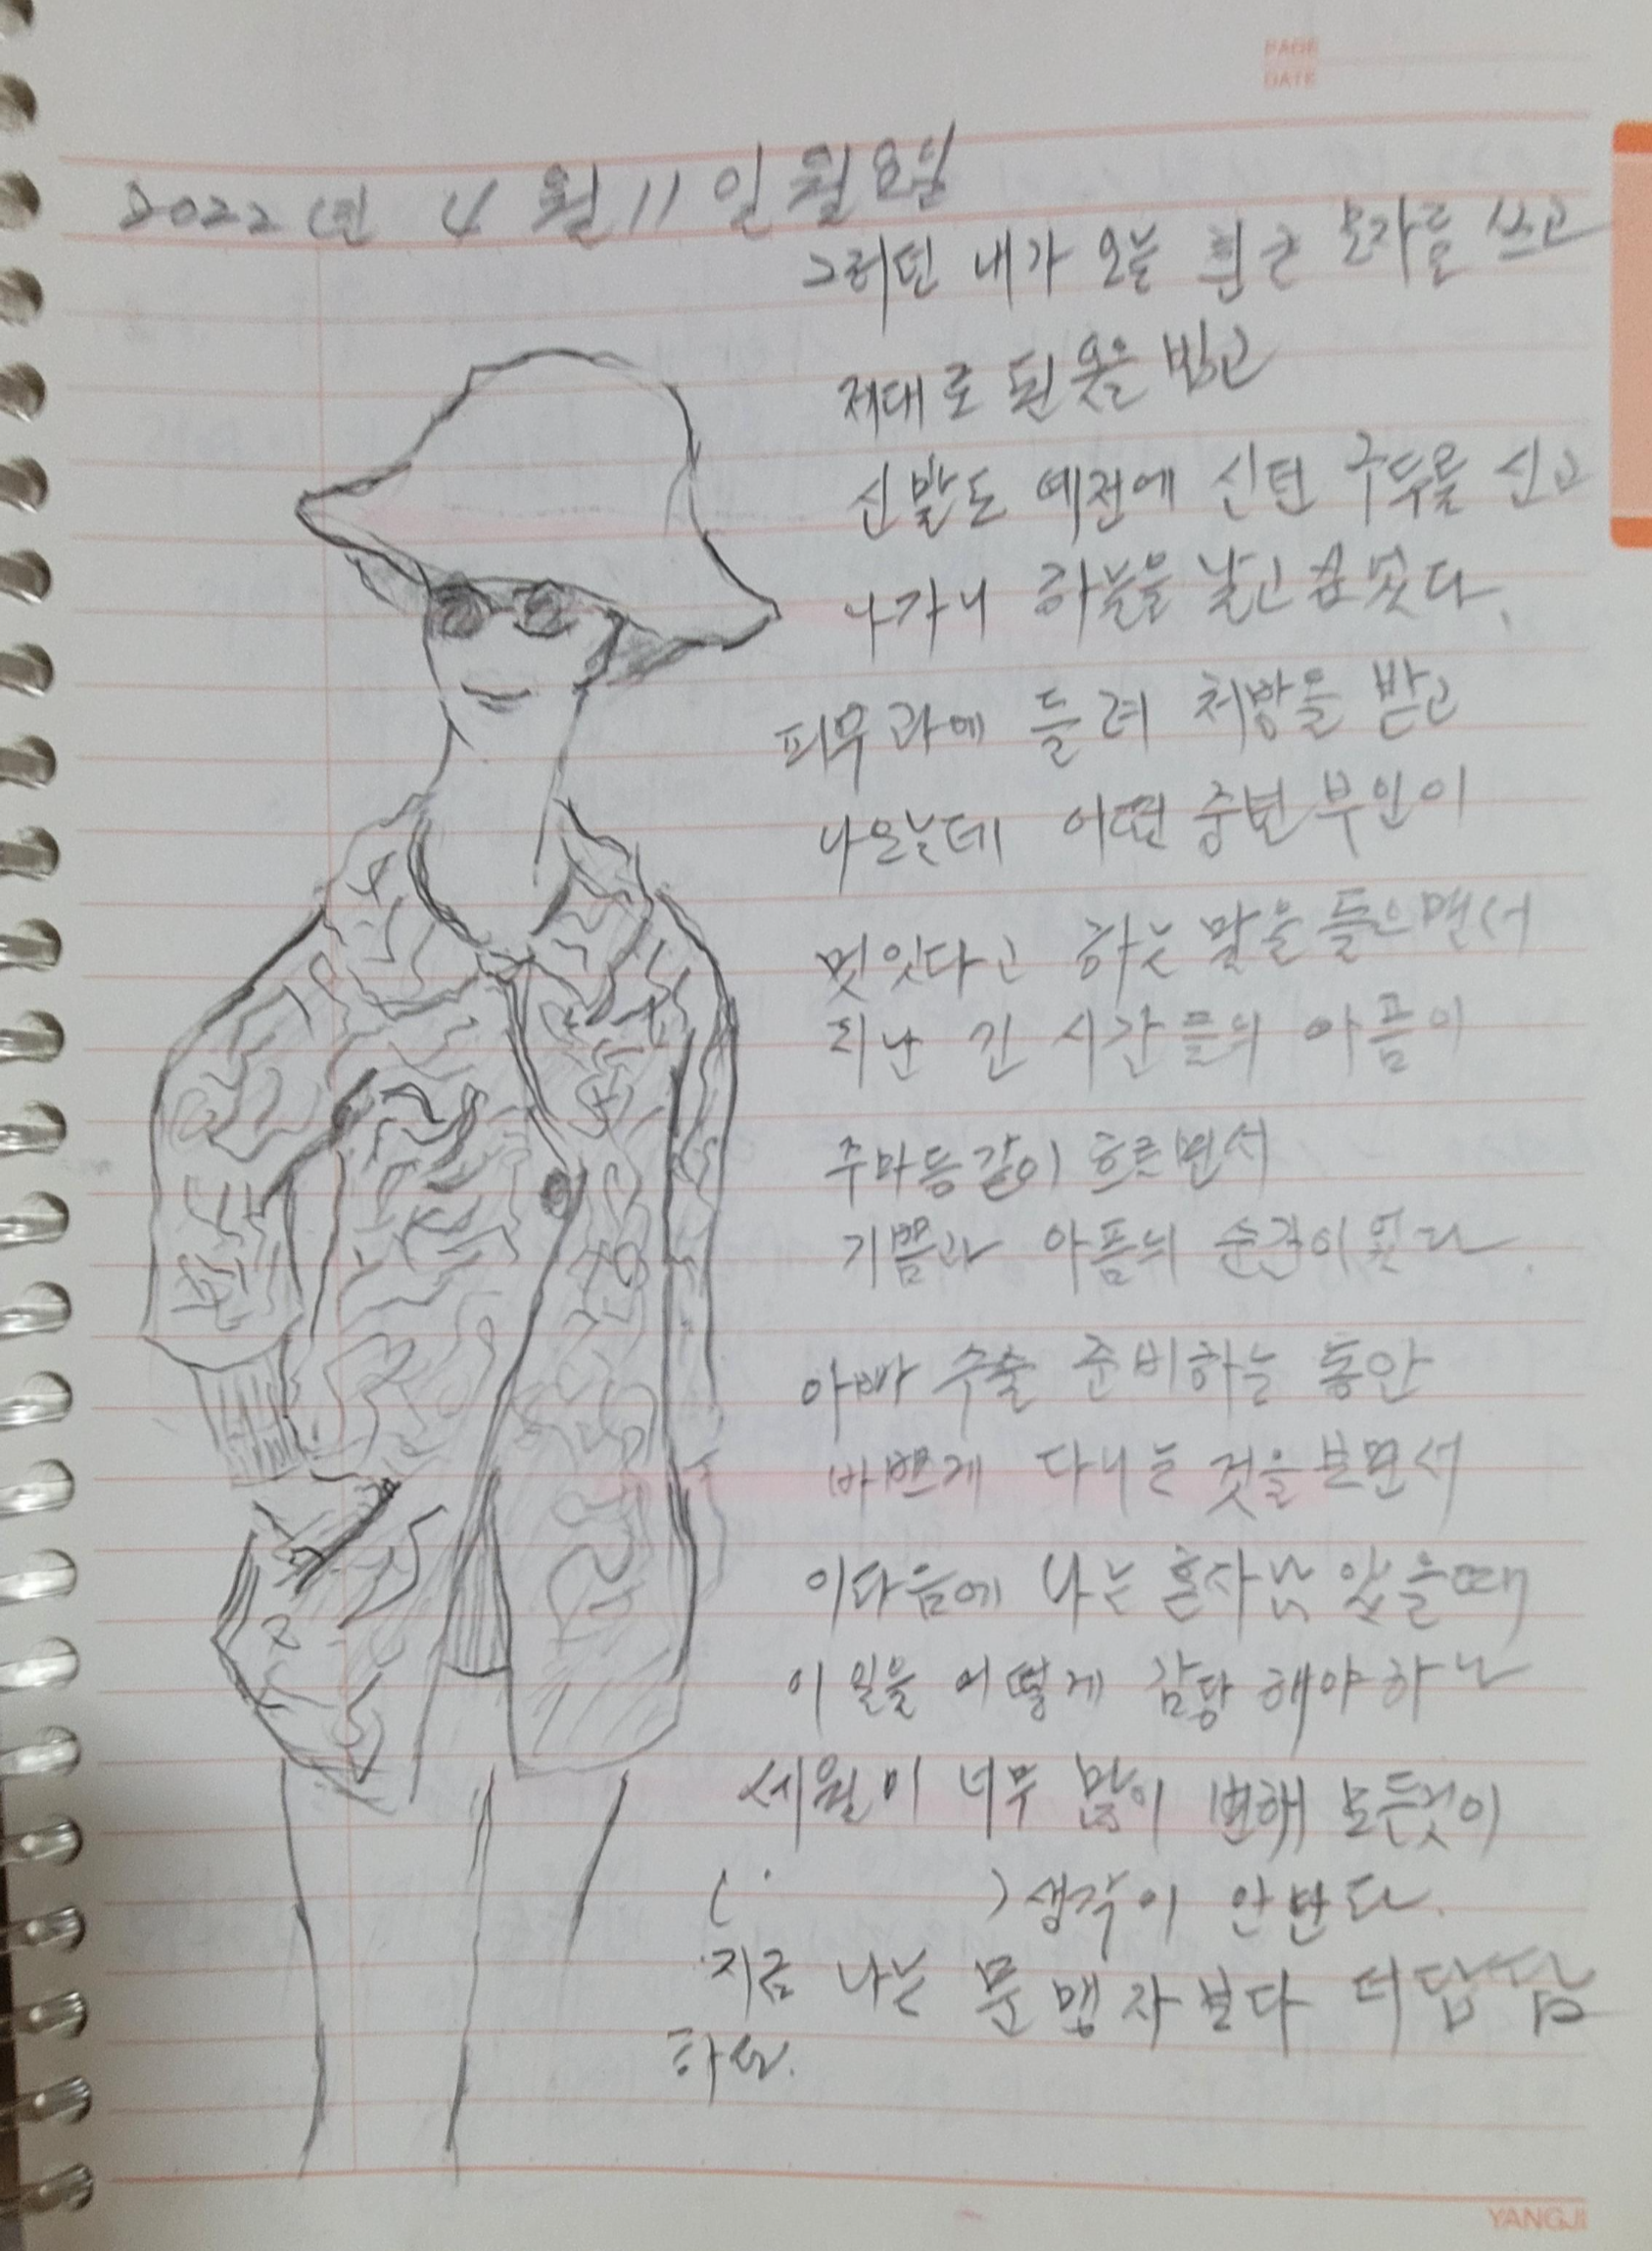 PAGE
DATE
2022년 4월 11일 월요일
그러던 내가 오늘 흰 모자를 쓰고
제대로 된 옷을 입고
신발도 예전에 신던 구두를 신고
나가니 하늘을 날고
피부과에 들려 처방을 받고
나오는데 어떤 중년 부인이
멋있다고 하는 말을 들으면서
지난 긴 시간들의 아픔이
주마등같이 흐르면서
기쁨과 아픔의 순간이었다
아빠 수술 준비하는 동안
바쁘게 다니는 것을 보면서
이다음에 나는 혼자 있을때
이 일을 어떻게 감당 해야하나
세월이 너무 많이 변해 모든것이
( ) 생각이 안난다.
지금 나는 문맹자보다 더 답답
하오.
YANGJI